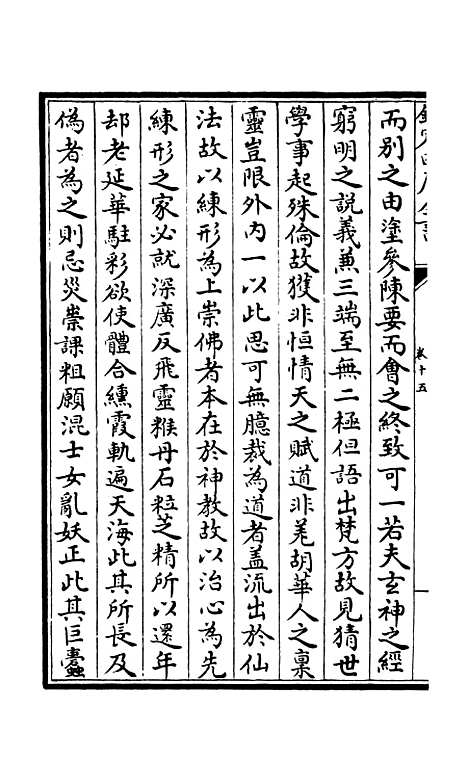 而别之由塗參陳要而會之終致可一若夫玄神之經
窮明之說義兼三端至無二極但語出梵方故見猜世
學事起殊倫故獲非恒情天之賦道非羌胡華人之稟
靈豈限外内一以此思可無臆裁為道者盖流出於仙
法故以練形為上崇佛者本在於神教故以治心為先
練形之家必就深廣反飛靈糇丹石粒芝精所以還年
却老延華駐彩欲使體合纁霞軌遍天海此其所長及
偽者為之則忌災祟課粗願混士女亂妖正此其巨蠹
卷十五